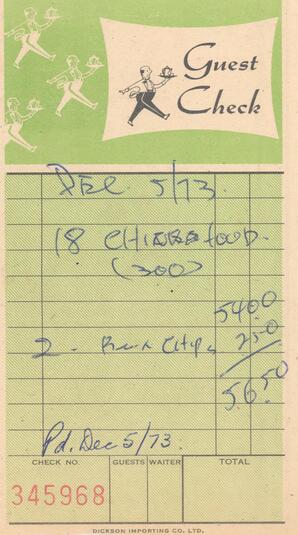 Guest
Check
DEC. 5/73.
18 CHINESE FOOD.
(300)
5400
2 - 250
56.50
Pd. Dec 5/73.
CHECK NO. GUESTS WAITER TOTAL
345968
DICKSON IMPORTING CO. LTD.